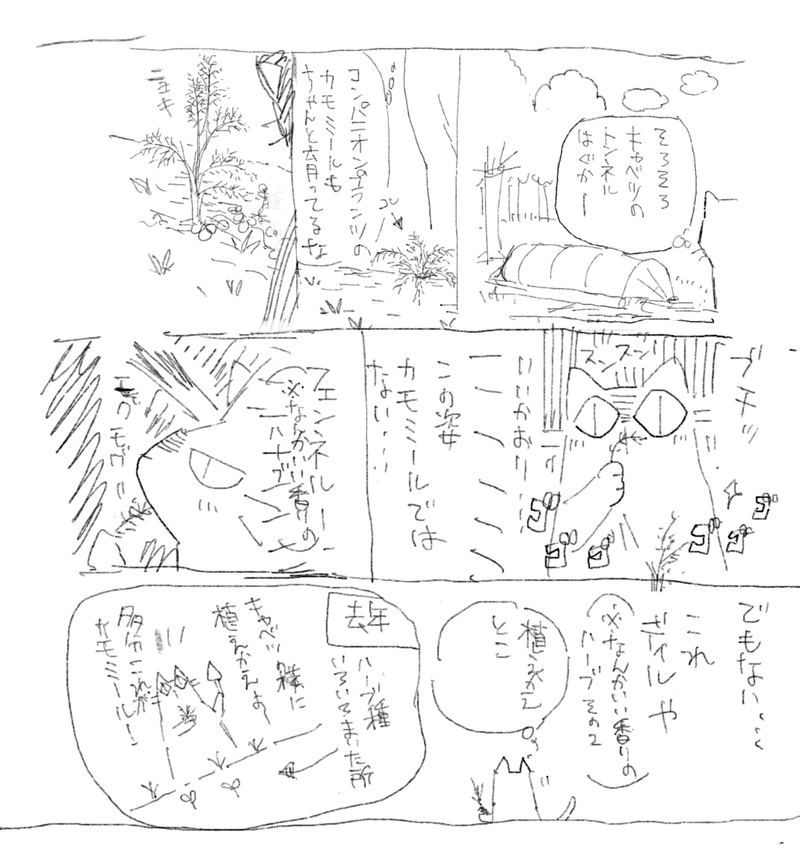 そろそろ
キャベツの
トンネル
はぐかー
コンパニオンプランツの
カモミールも
ちゃんと育ってるな
コレ
ニョキ
ブチッ
スンスン
いいかおり…
この姿
カモミールでは
ない…
フェンネルー!
(※なんかいい香りの
ハーブ)
モグモグ
でもない…
これ
ディルや
(※なんかいい香りの
ハーブその2)
植えかえ
とこ
去年
ハーブ種
いろいろまいた所
キャベツ横に
植えかえよー
多分これが
カモミール!